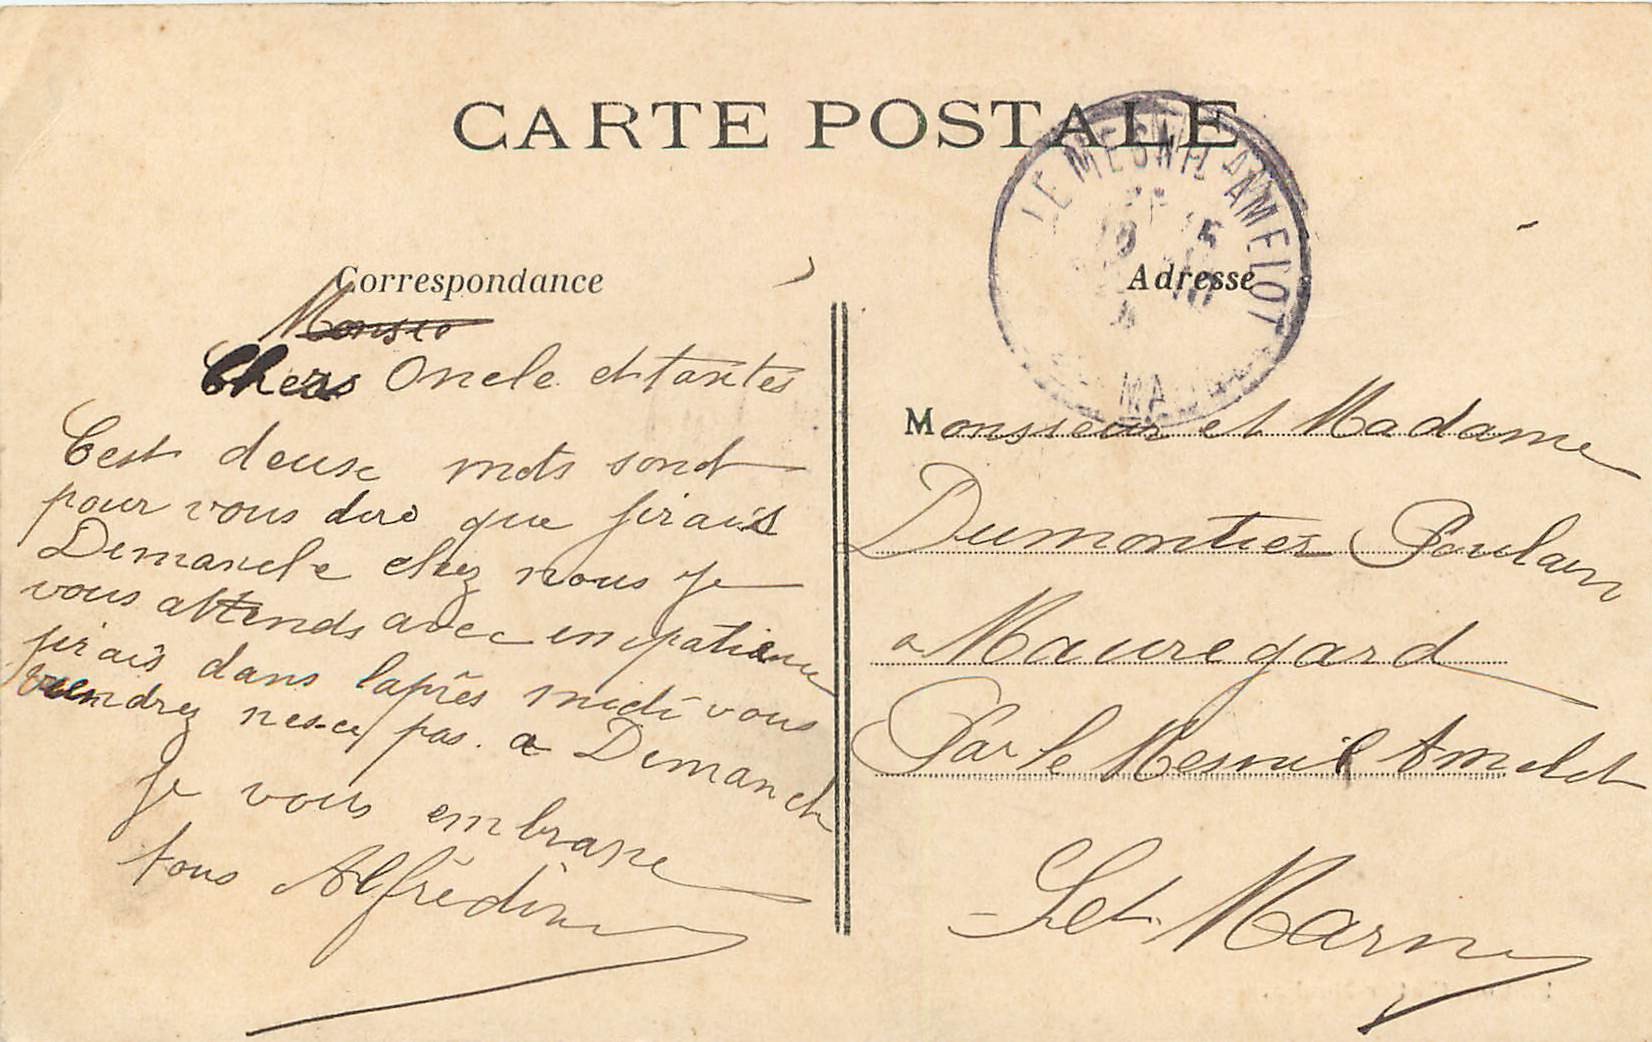 CARTE POSTALE
LE MESNIL AMELOT
Correspondance
Adresse
Monsie
Chers Oncle et tantes
C'est deuse mots sond
pour vous dire que jirais
Dimanche chez nous je
vous attends avec inpatience
jirais dans l'aprês midi vous
viendrez nes-ce pas. a Dimanche
Je vous embrasse
tous Alfrédine
Monsieur et Madame
Dumontier Poulain
a Mauregard
Par le Mesnil Amelot
Set Marne